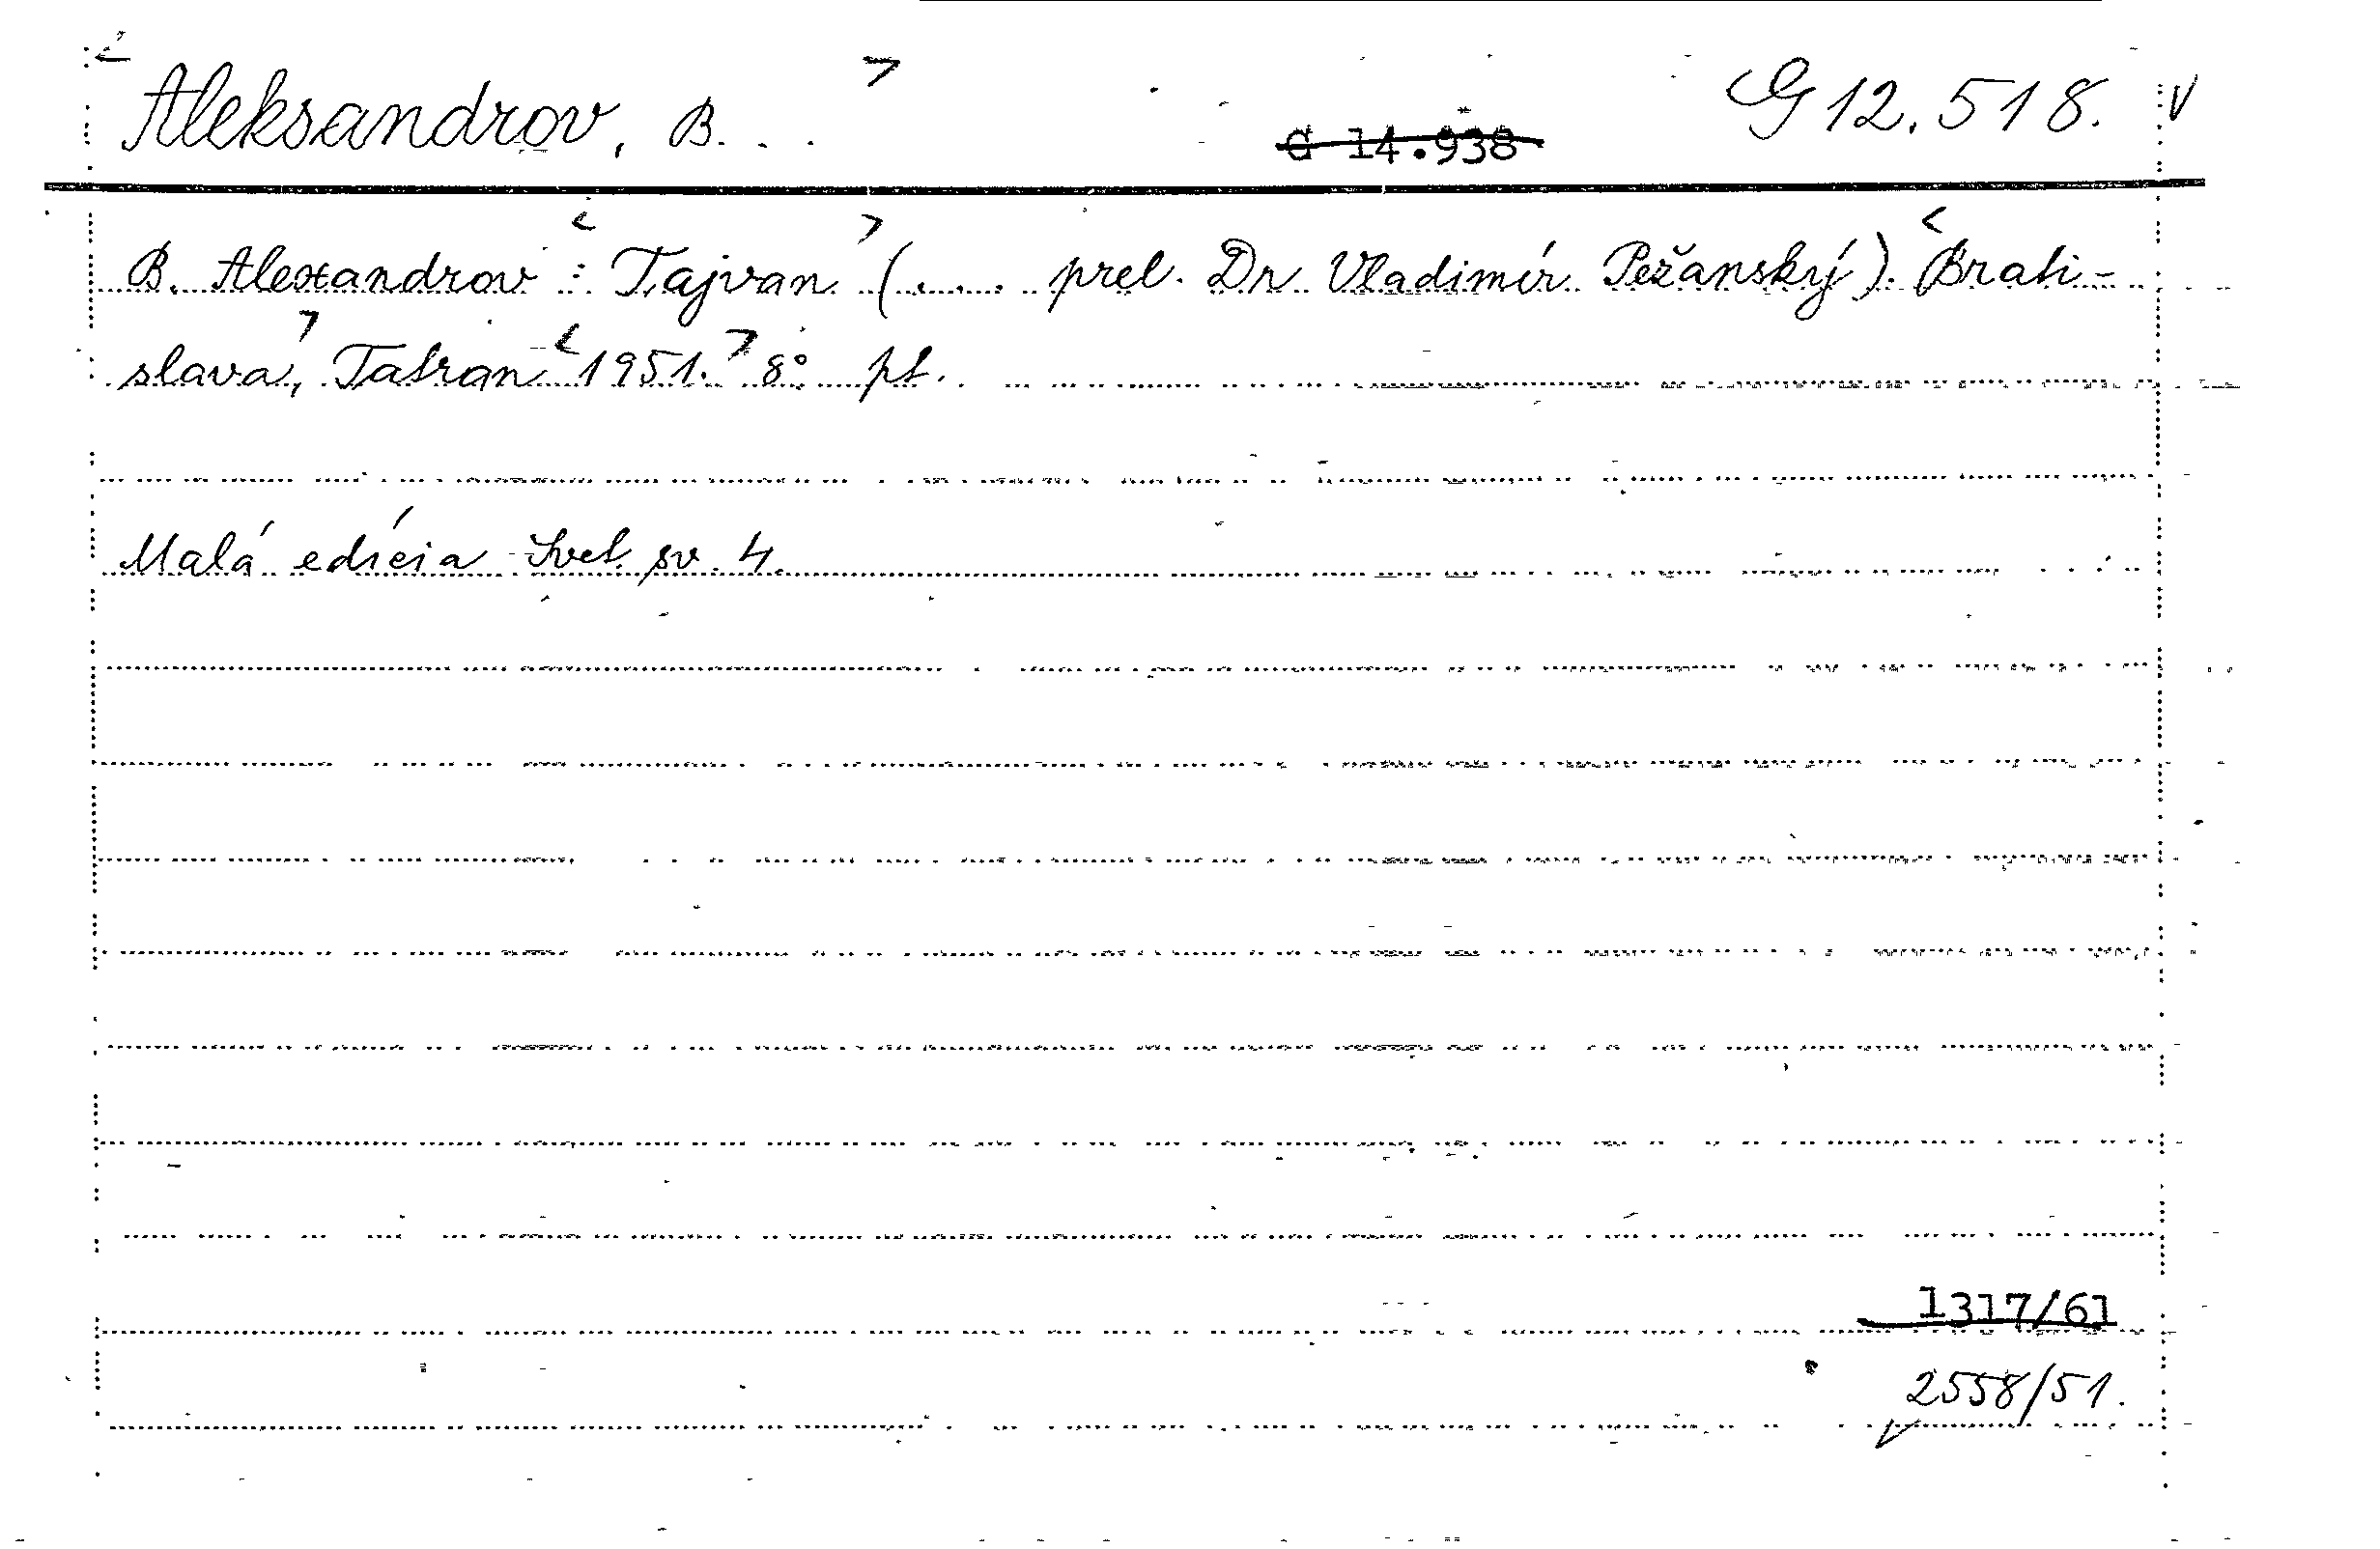 Aleksandrov, B. . .
G 14.938
G 12.518. V
B. Alexandrov : Tajvan (. . . prel. Dr. Vladimír Pežanský). Brati-
slava, Tatran 1951. 8° pt.
Malá edícia Svet sv. 4.
1317/61
2558/51.